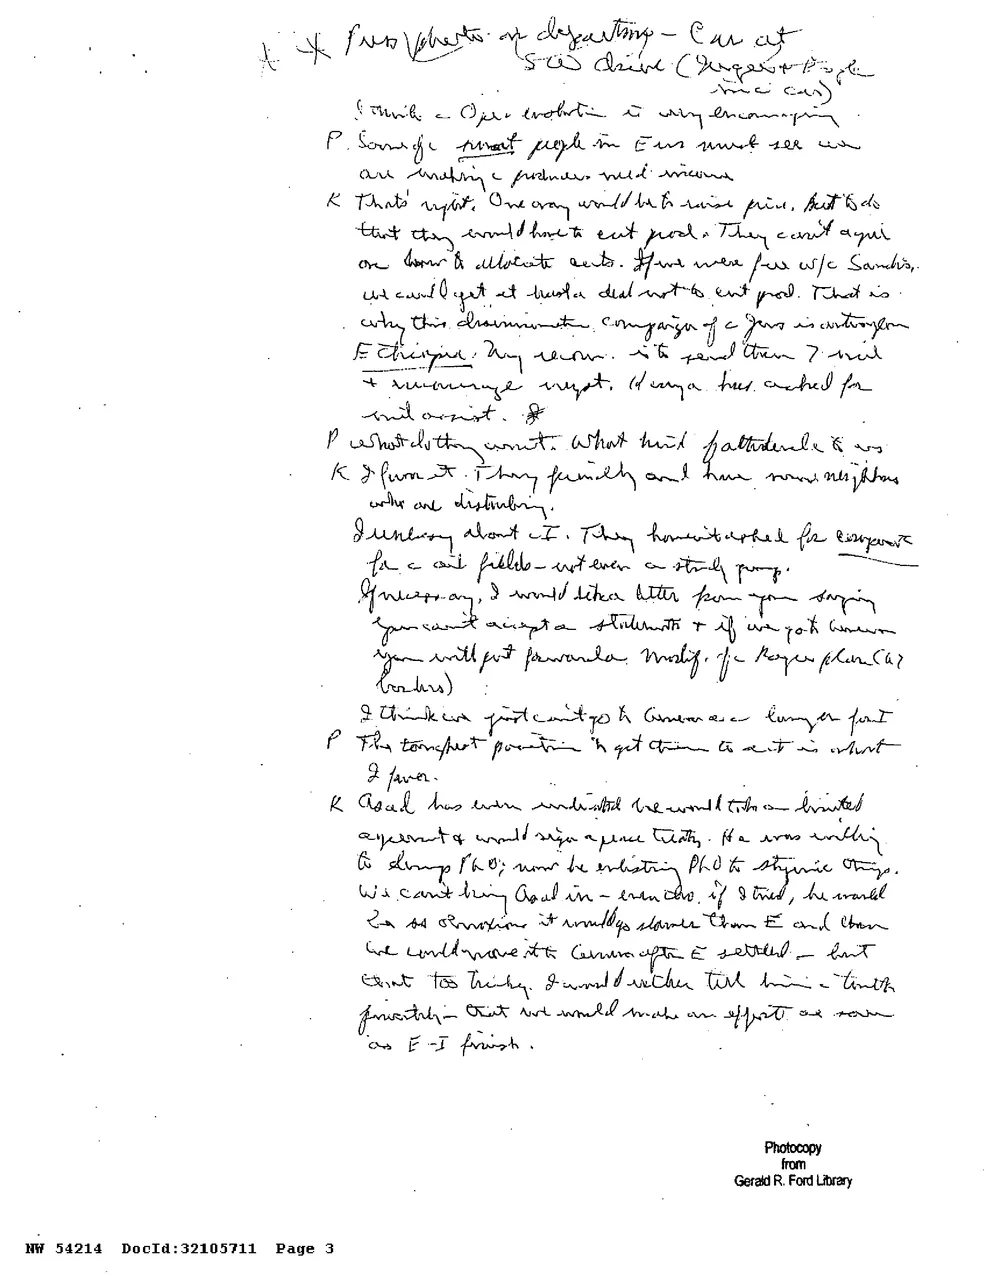 Press/photo on departing – Car at
SW drive (Jurgen + people
in a car)
I think a Opec evolution is very encouraging
P. Some of c smart people in Eur must see we
are making c producers need income
K That's right. One way would be to raise price. But to do
that they would have to cut prod. They can't agree
on how to allocate cuts. If we were free w/c Saudis,
we could get at least a deal not to cut prod. That is
why this discrimination campaign of c Jews is
Ethiopia. My recom. is to send them 7 mil
+ encourage negot. Kenya has asked for
mil assist.
P What do they want. What kind of attitude to us
K I favor it. They friendly and have some neighbors
who are disturbing.
I uneasy about c I. They haven't asked for
for c oil fields – not even a study group.
If necessary, I would like a letter from you saying
you can't accept a stalemate + if we go to Geneva
you will put forward a modif. of c Rogers plan (67
borders)
I think we just can't go to Geneva as a lawyer for I
P The toughest position to get them to act is what
I favor.
K Asad has even indicated he would take a limited
agreement & would sign a peace treaty. He was willing
to dump PLO; now he enlisting PLO to stymie things.
We can't bring Asad in – even tho if I tried, he would
be so obnoxious it would go slower than E and then
we could move it to Geneva after E settled – but
that too tricky. I would rather tell him c truth
privately – that we would make an effort as soon
as E-I finish.
Photocopy
from
Gerald R. Ford Library
NW 54214 DocId:32105711 Page 3